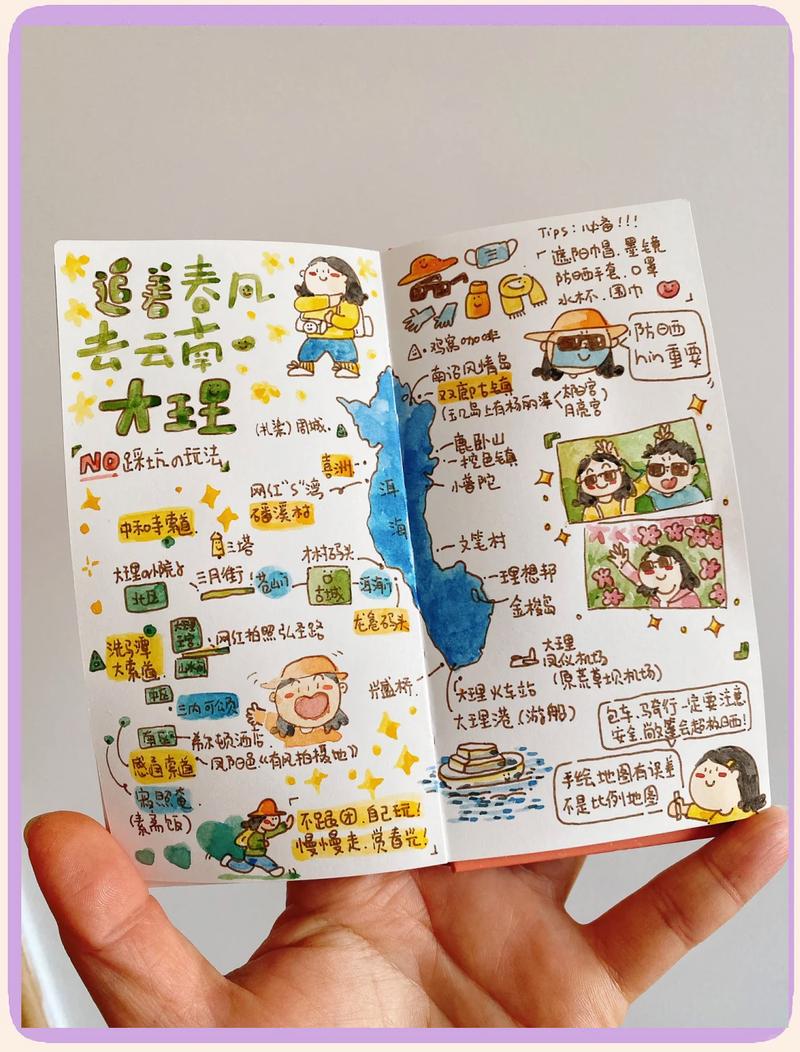 追着春风
去云南
大理
(扎染)周城
NO踩坑の玩法
喜洲
网红"S"湾
磻溪村
中和寺索道
三塔
才村码头
大理
北区
三月街
苍山门
古城
洱海门
龙龛码头
洗马潭
大索道
网红拍照弘圣路
中区
三内可颂
兴盛桥
南区
希尔顿酒店
感通索道
凤阳邑《有风拍摄地》
寂照庵
(素斋饭)
不跟团,自己玩!
慢慢走,赏春光!
Tips:必备!!!
遮阳帽、墨镜
防晒手套、口罩
水杯、围巾
鸡窝咖啡
防晒
hin重要
南诏风情岛
双廊古镇
(玉几岛上有杨丽萍
太阳宫
月亮宫
鹿卧山
挖色镇
小普陀
洱
海
文笔村
理想邦
金梭岛
大理
凤仪机场
(原荒草坝机场)
大理火车站
大理港(游船)
包车、骑行一定要注意
安全,敞篷会超级晒!
手绘地图有误差
不是比例地图